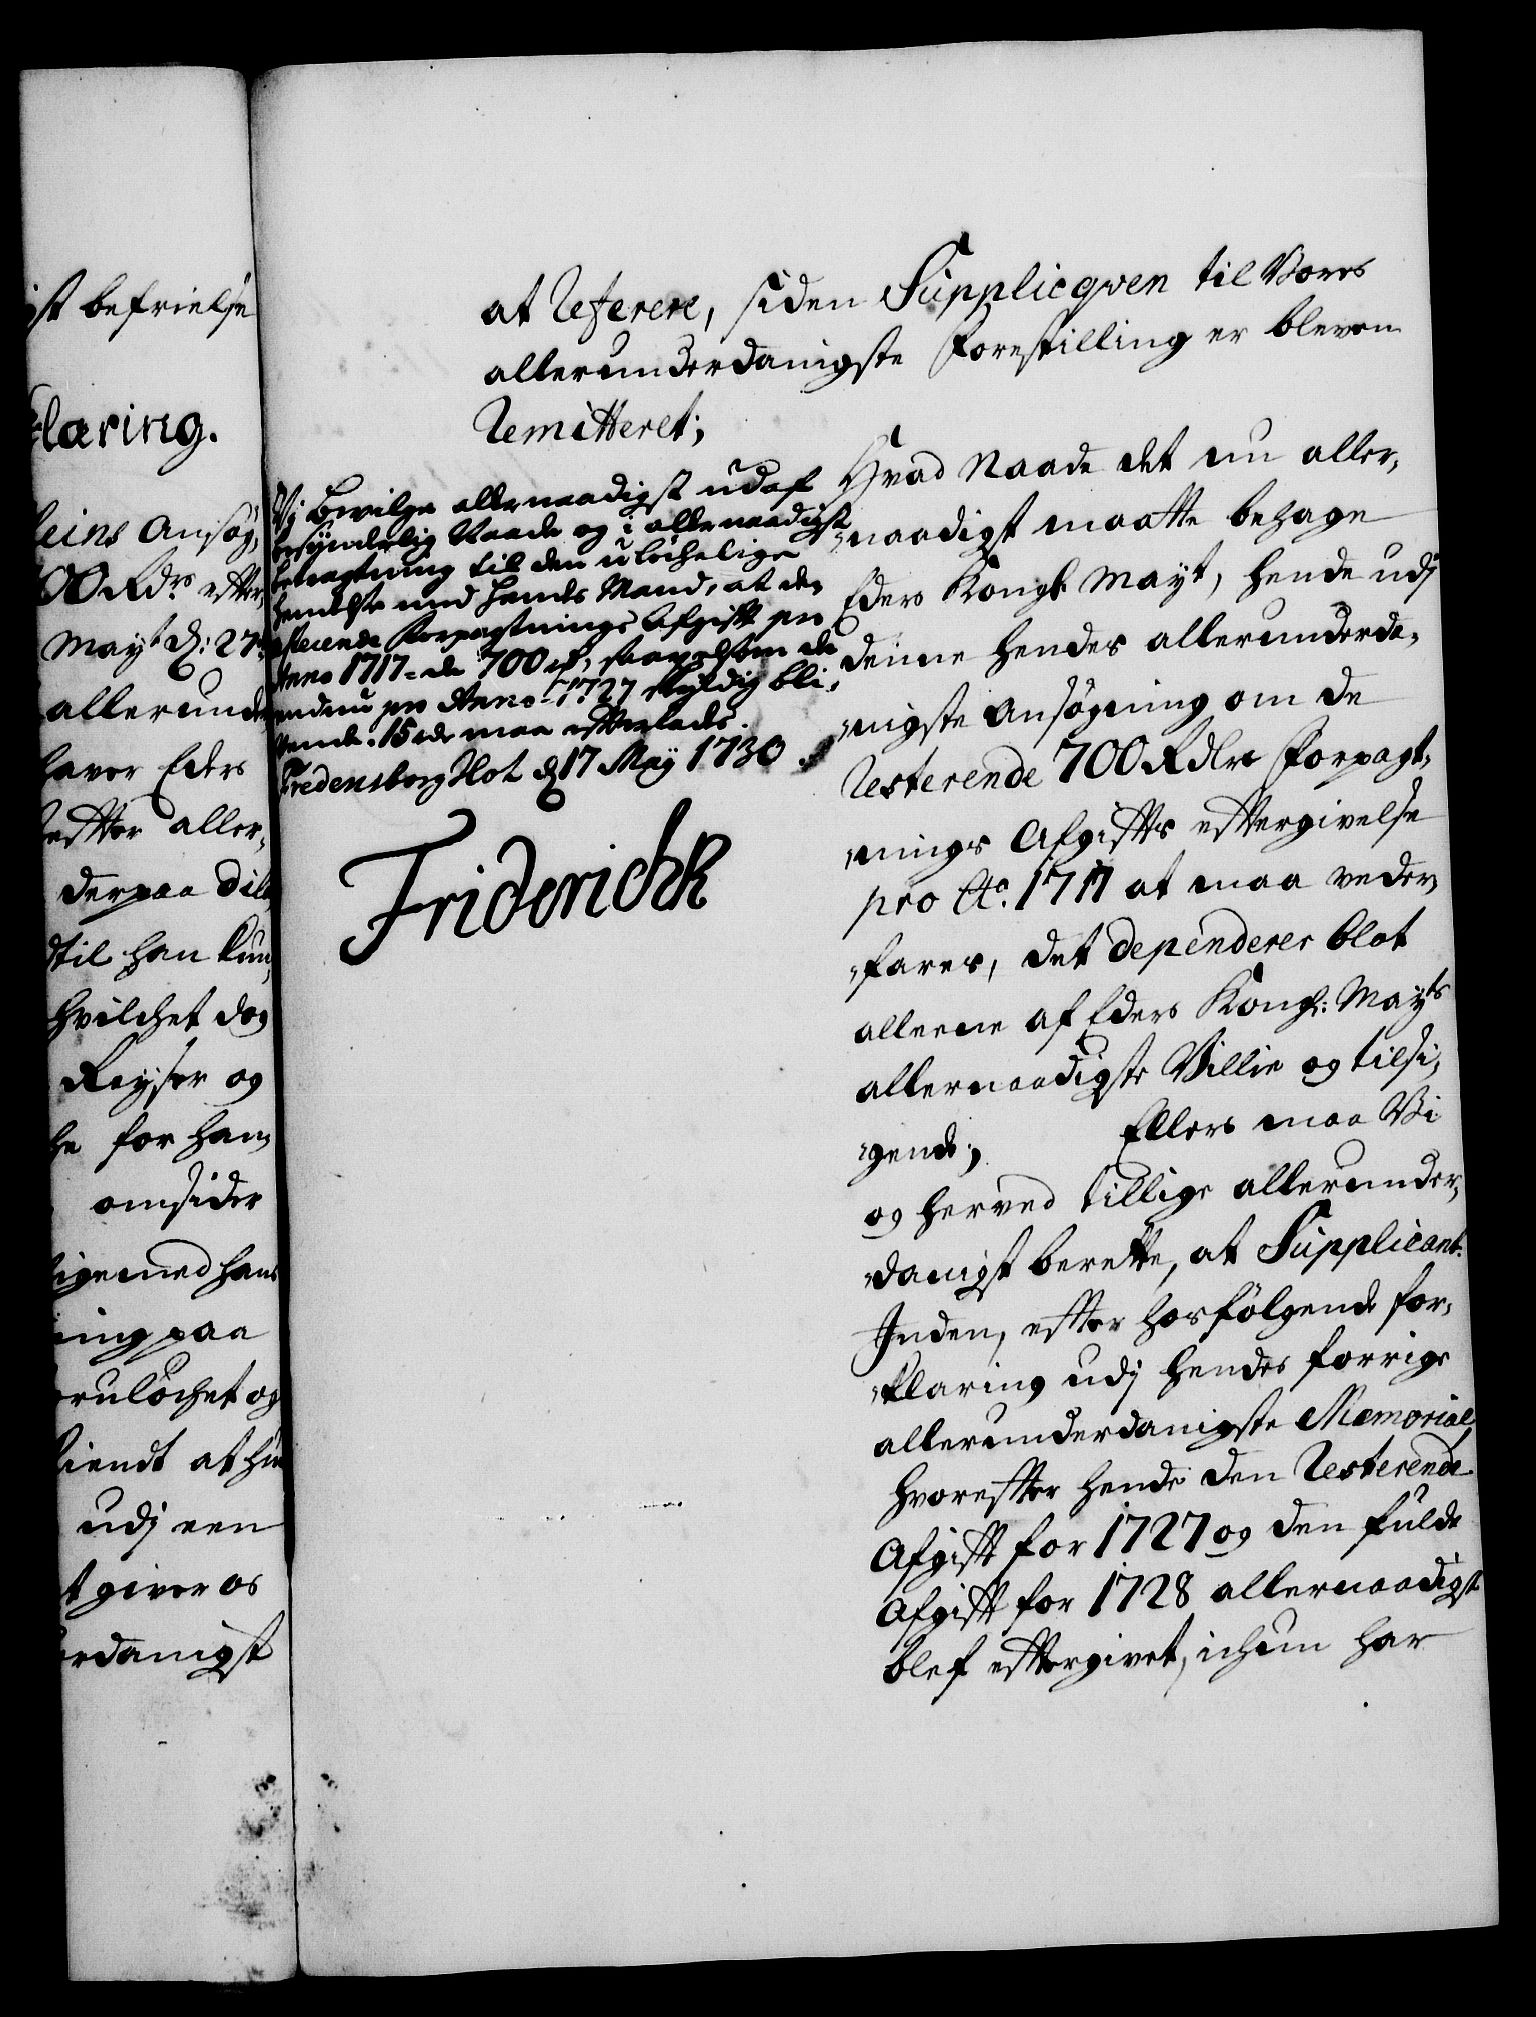 st befrielse
laring.
eins Ansøg,
00 Rdrs effter,
Mayt d: 27
allerunde
haver Eders
effter aller,
derpaa
til han kun,
hvilchet dog
Reyser og
he for ham,
omsider
ligemed hans
ing paa
rulöchet og
tiendt at hun
udj een
t giver os
erdanigst
at Referere, siden Supplicqven til Vores
allerunderdanigste Forestilling er bleven
Remitteret;
Vj bevilge allernaadigst udaf
besynderlig Naade og i allernaadigst
betragtning til den ulöchelige
hendelse med hendes Mand, at den
resterende Forpagtnings Afgift pro
Anno 1717 - de 700 rdr, saavelsom de
endnu pro Anno 1727 skyldig bli,
vende 15 rdr maa efterlades.
Fredensborg Slot d 17 May 1730.
Friderich R
Hvad Naade det nu aller,
naadigst maatte behage
Eders Kongl Mayt, hende udj
denne hendes allerunderda,
nigste Ansøgning om de
Resterende 700 Rdlrs Forpagt,
nings Afgiffts efftergivelse
pro Ao. 1717 at maa veder,
fares, det dependerer blot
alleene af Eders Kongl: Mayts
allernaadigste Villie og tilsi,
gende; Ellers maa Vi
og herved tillige allerunder,
danigst berette, at Supplicant.
Inden, effter hosfölgende for,
klaring udj hendes forrige
allerunderdanigste Memorial,
hvoreffter hende den Resterende
Afgifft for 1727 og den fulde
Afgifft for 1728 allernaadigst
blef efftergivet, ichun har